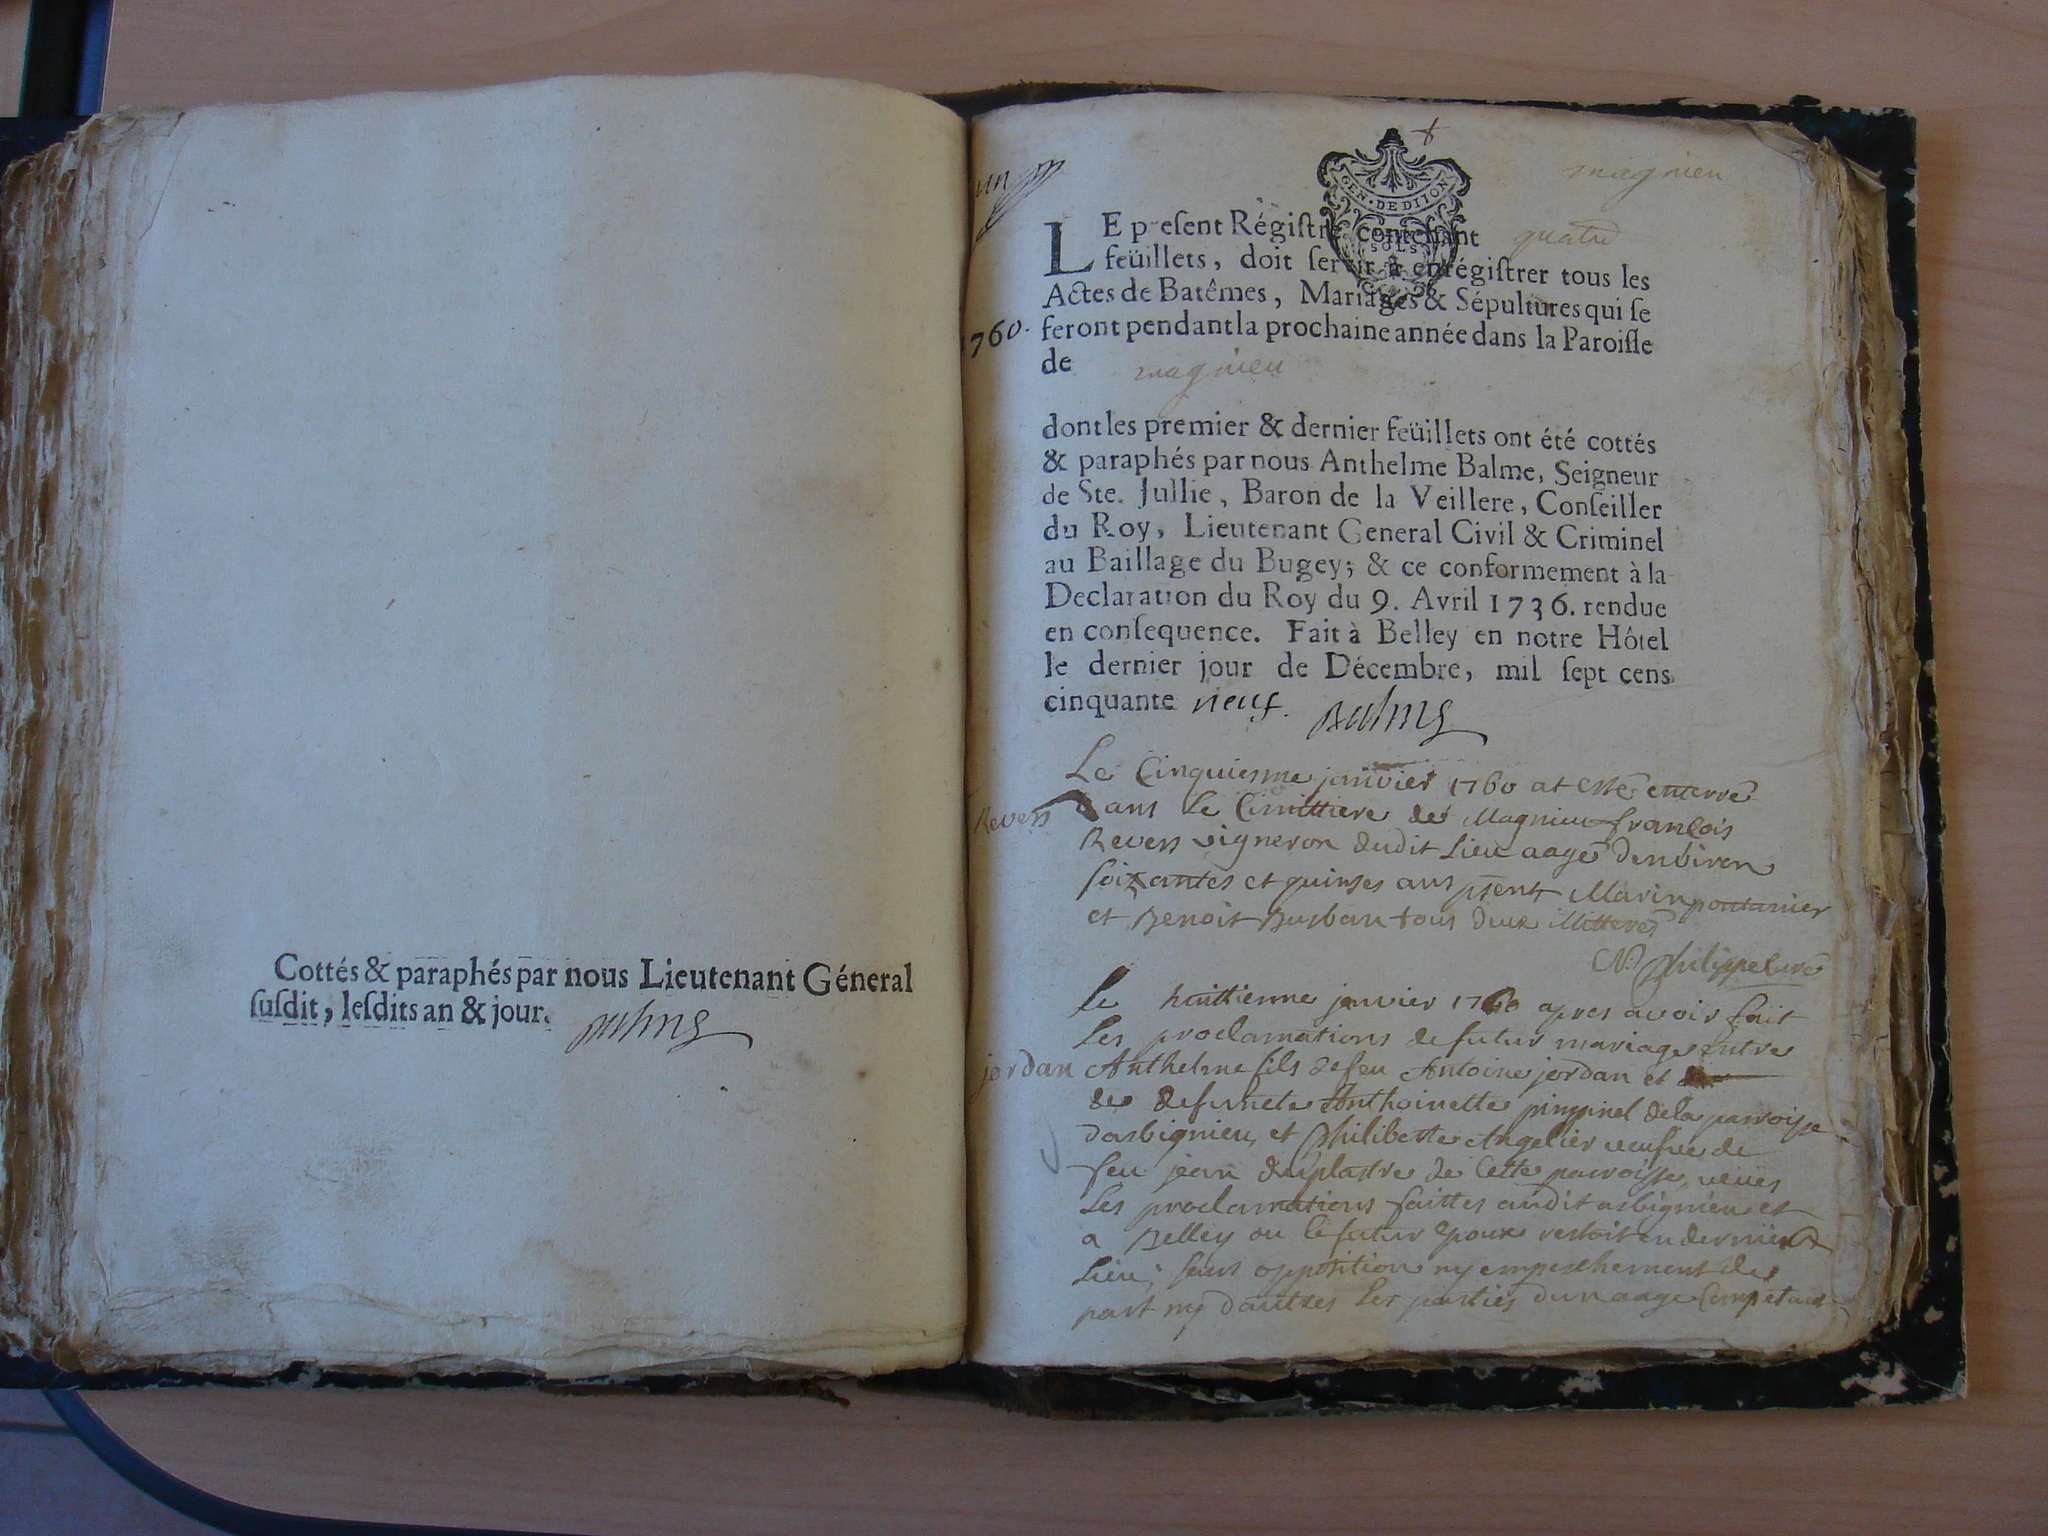 Cottés & paraphés par nous Lieutenant Géneral
ſuſdit, leſdits an & jour.
Balme
un
magnieu
GEN. DE DIJON
SOLS
LE preſent Régiſtre contenant quatre
feüillets, doit ſervir à enrégiſtrer tous les
Actes de Batêmes, Mariages & Sépultures qui ſe
1760.
feront pendant la prochaine année dans la Paroiſſe
de magnieu
dont les premier & dernier feüillets ont été cottés
& paraphés par nous Anthelme Balme, Seigneur
de Ste. Jullie, Baron de la Veillere, Conſeiller
du Roy, Lieutenant General Civil & Criminel
au Baillage du Bugey; & ce conformement à la
Declaration du Roy du 9. Avril 1736. rendue
en conſequence. Fait à Belley en notre Hôtel
le dernier jour de Décembre, mil ſept cens
cinquante neuf. Balme
Le Cinquiesme janvier 1760 at esté enterré
Revers
dans le Cimittiere de Magnieu françois
Revers vigneron dudit Lieu aagé denviron
soixantes et quinses ans pñent Marin pontanier
et Benoit Burban tous deux Illitterés
Philippe curé
le huittienne janvier 1760 apres avoir fait
les proclamations de futur mariage entre
jordan
Anthelme fils de feu Antoine jordan et
de defuncte Anthoinette pinginel de la parroisse
darbignieu, et Philiberte Angelier veufve de
feu jean duplastre de Cette parroisse, veües
les proclamations faittes audit arbignieu et
a Belley ou le futur Epoux restoit en dernier
Lieu; sans opposition ny empeschement de
part ny dautres les parties dun aage Competant